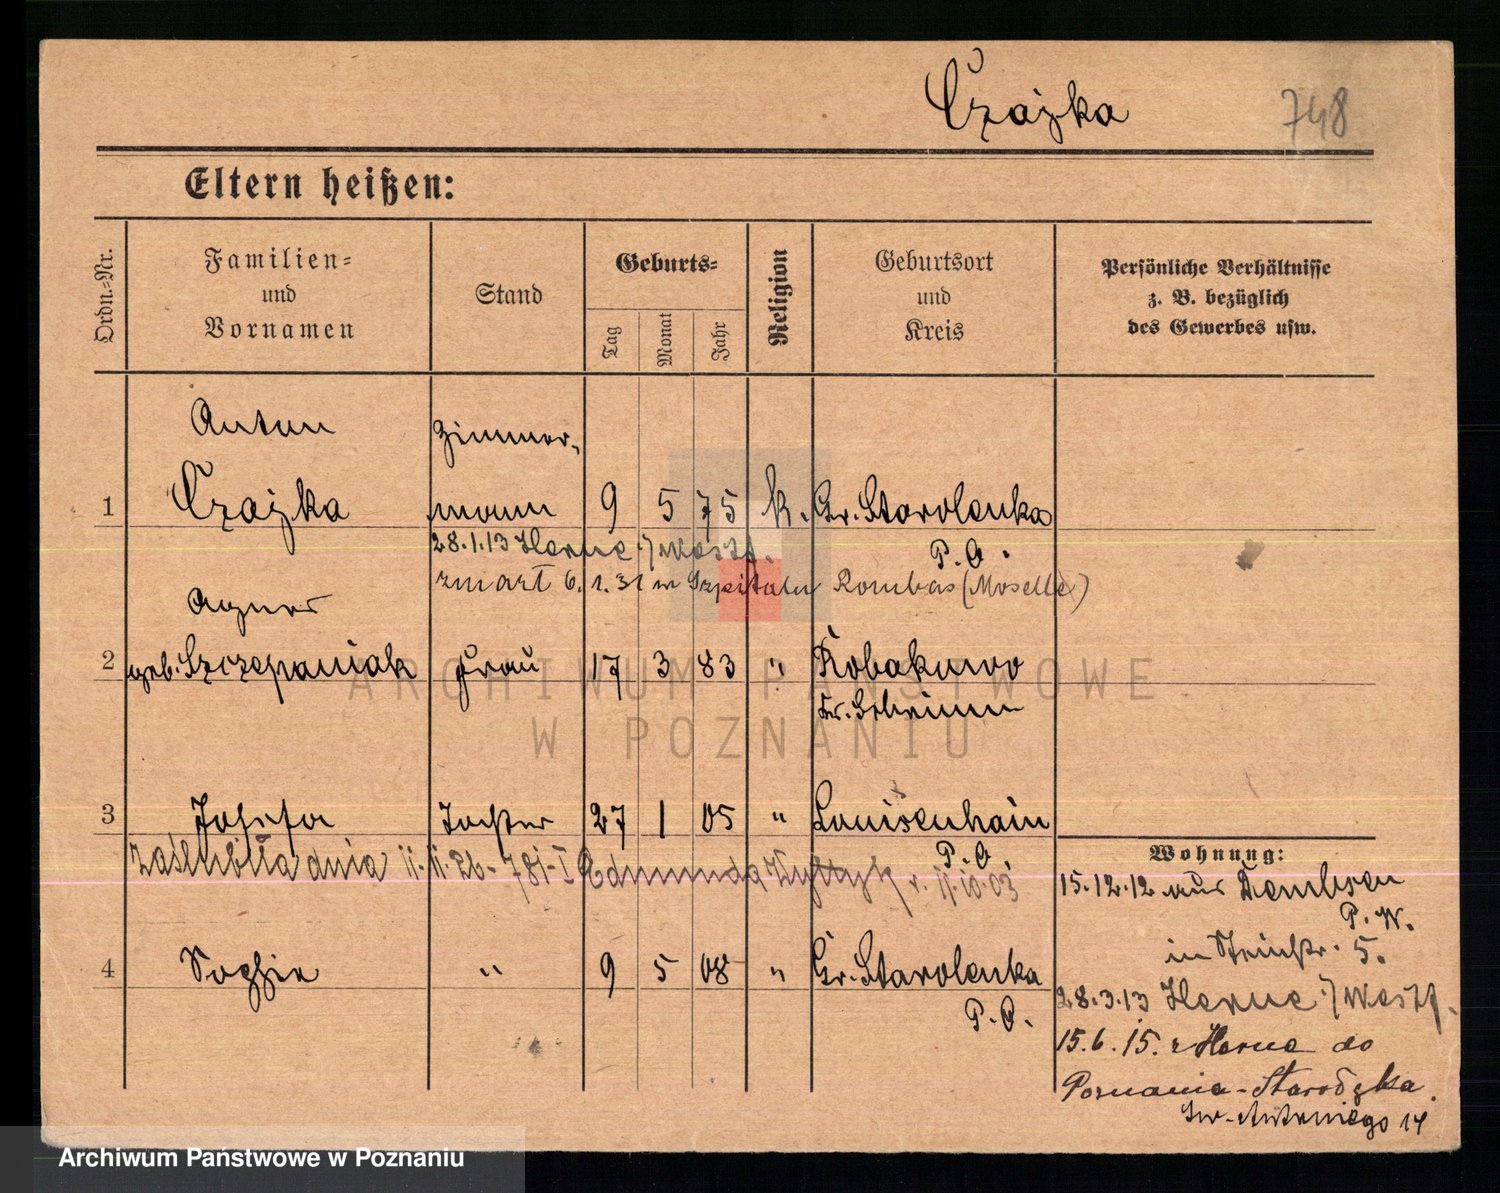 Czajka
748
Eltern heißen:
Ordn.-Nr.
Familien-
und
Vornamen
Stand
Geburts-
Tag
Monat
Jahr
Religion
Geburtsort
und
Kreis
Persönliche Verhältnisse
z. B. bezüglich
des Gewerbes usw.
Anton
Zimmer-
1 Czajka mann 9 5 75 k. Gr. Starolenka
28.1.13 Herne i/Westf.
P. O.
zmarł 6.1.31 w Szpitalu Rombas (Moselle)
Agnes
2 geb. Szczepaniak Frau 17 3 83 " Kobakowo
Kr. Schrimm
3 Josefa Tochter 27 1 05 " Louisenhain
P. O.
zaślubiła dnia 11.11.26 - 781-I Edmunda r. 11.10.03
4 Sophie " 9 5 08 " Gr. Starolenka
P. O.
Wohnung:
15.12.12 aus Dembsen
P. W.
in Steinstr. 5.
28.3.13 Herne i/Westf.
15.6.15. z Herne do
Poznania - Starołęka.
Św. Antoniego 14
ARCHIWUM PAŃSTWOWE
W POZNANIU
Archiwum Państwowe w Poznaniu